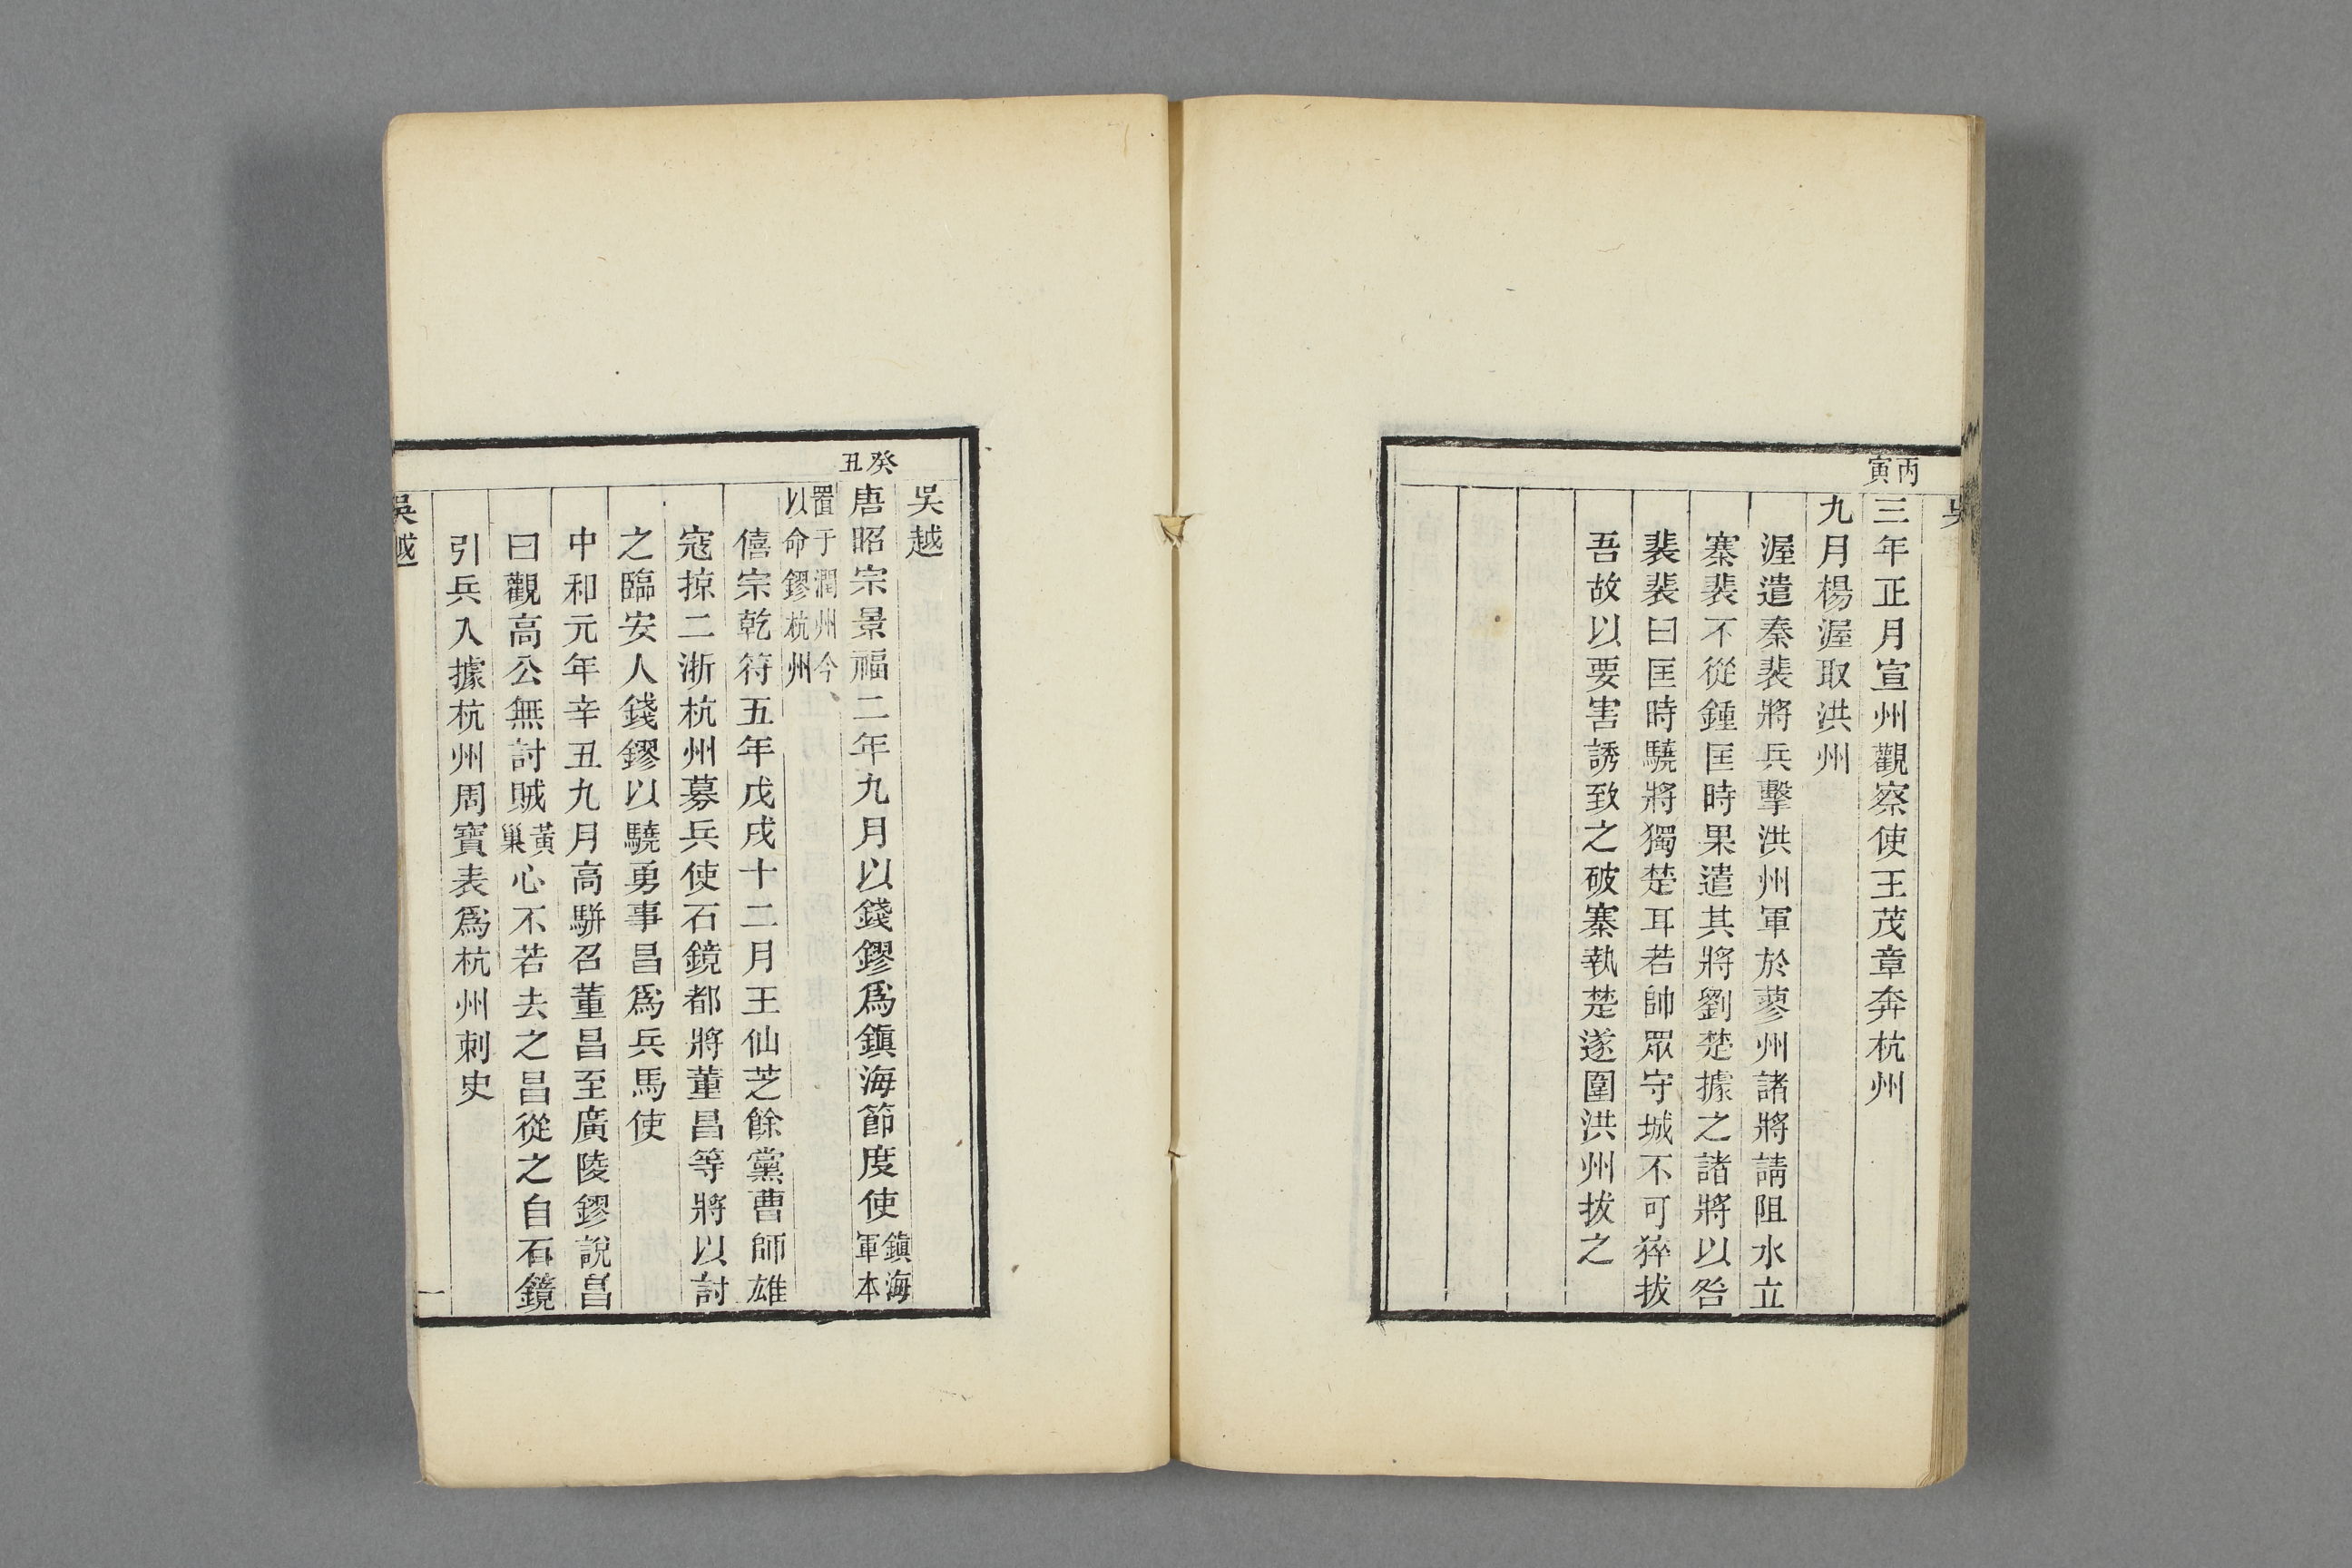 丙寅
三年正月宣州觀察使王茂章奔杭州
九月楊渥取洪州
渥遣秦裴將兵擊洪州軍於蓼州諸將請阻水立
寨裴不從鍾匡時果遣其將劉楚據之諸將以咎
裴裴曰匡時驍將獨楚耳若帥眾守城不可猝拔
吾故以要害誘致之破寨執楚遂圍洪州拔之
吳越
癸丑
唐昭宗景福二年九月以錢鏐爲鎭海節度使鎭海軍本
置于潤州今以命鏐杭州
僖宗乾符五年戊戌十二月王仙芝餘黨曹師雄
寇掠二浙杭州募兵使石鏡都將董昌等將以討
之臨安人錢鏐以驍勇事昌爲兵馬使
中和元年辛丑九月高駢召董昌至廣陵鏐說昌
曰觀高公無討賊黃巢心不若去之昌從之自石鏡
引兵入據杭州周寶表爲杭州刺史
吳越
一